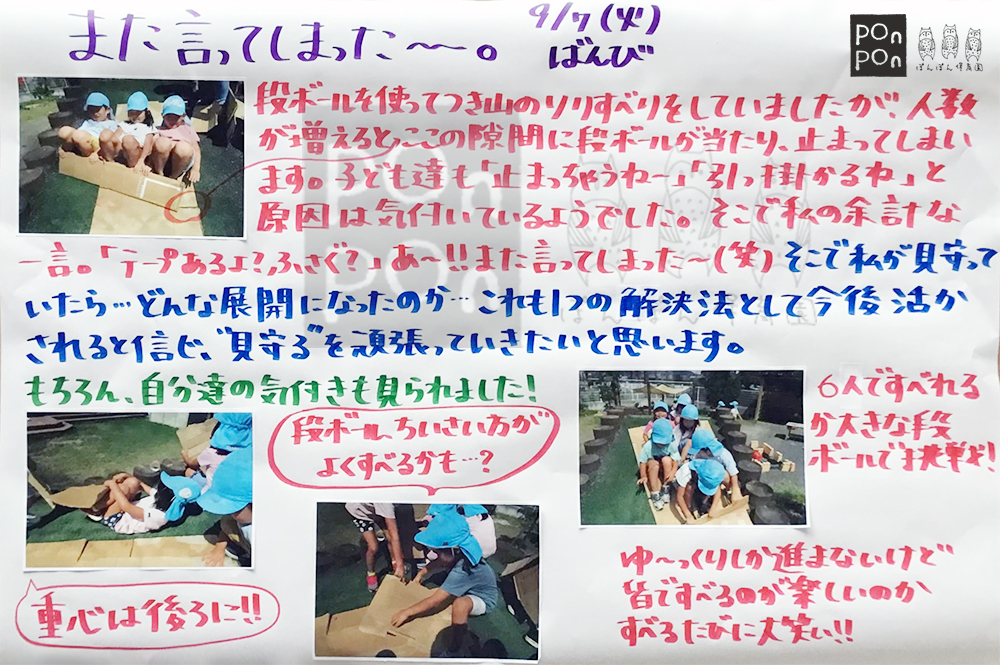 また言ってしまった〜。
9/7(火)
ばんび
pon
pon
ぽんぽん保育園
段ボールを使ってつき山のソリすべりをしていましたが、人数
が増えると、ここの隙間に段ボールが当たり、止まってしまい
ます。子ども達も「止まっちゃうねー」「引っ掛かるね」と
原因は気付いているようでした。そこで私の余計な
一言。「テープあるよ?ふさぐ?」あ〜!!また言ってしまった〜(笑)そこで私が見守って
いたら…どんな展開になったのか…これも1つの解決法として今後活か
されると信じ、"見守る"を頑張っていきたいと思います。
もちろん、自分達の気付きも見られました!
段ボール、ちいさい方が
よくすべるかも…?
6人ですべれる
か大きな段
ボールで挑戦!
重心は後ろに!!
ゆ〜っくりしか進まないけど
皆ですべるのが楽しいのか
すべるたびに大笑い!!